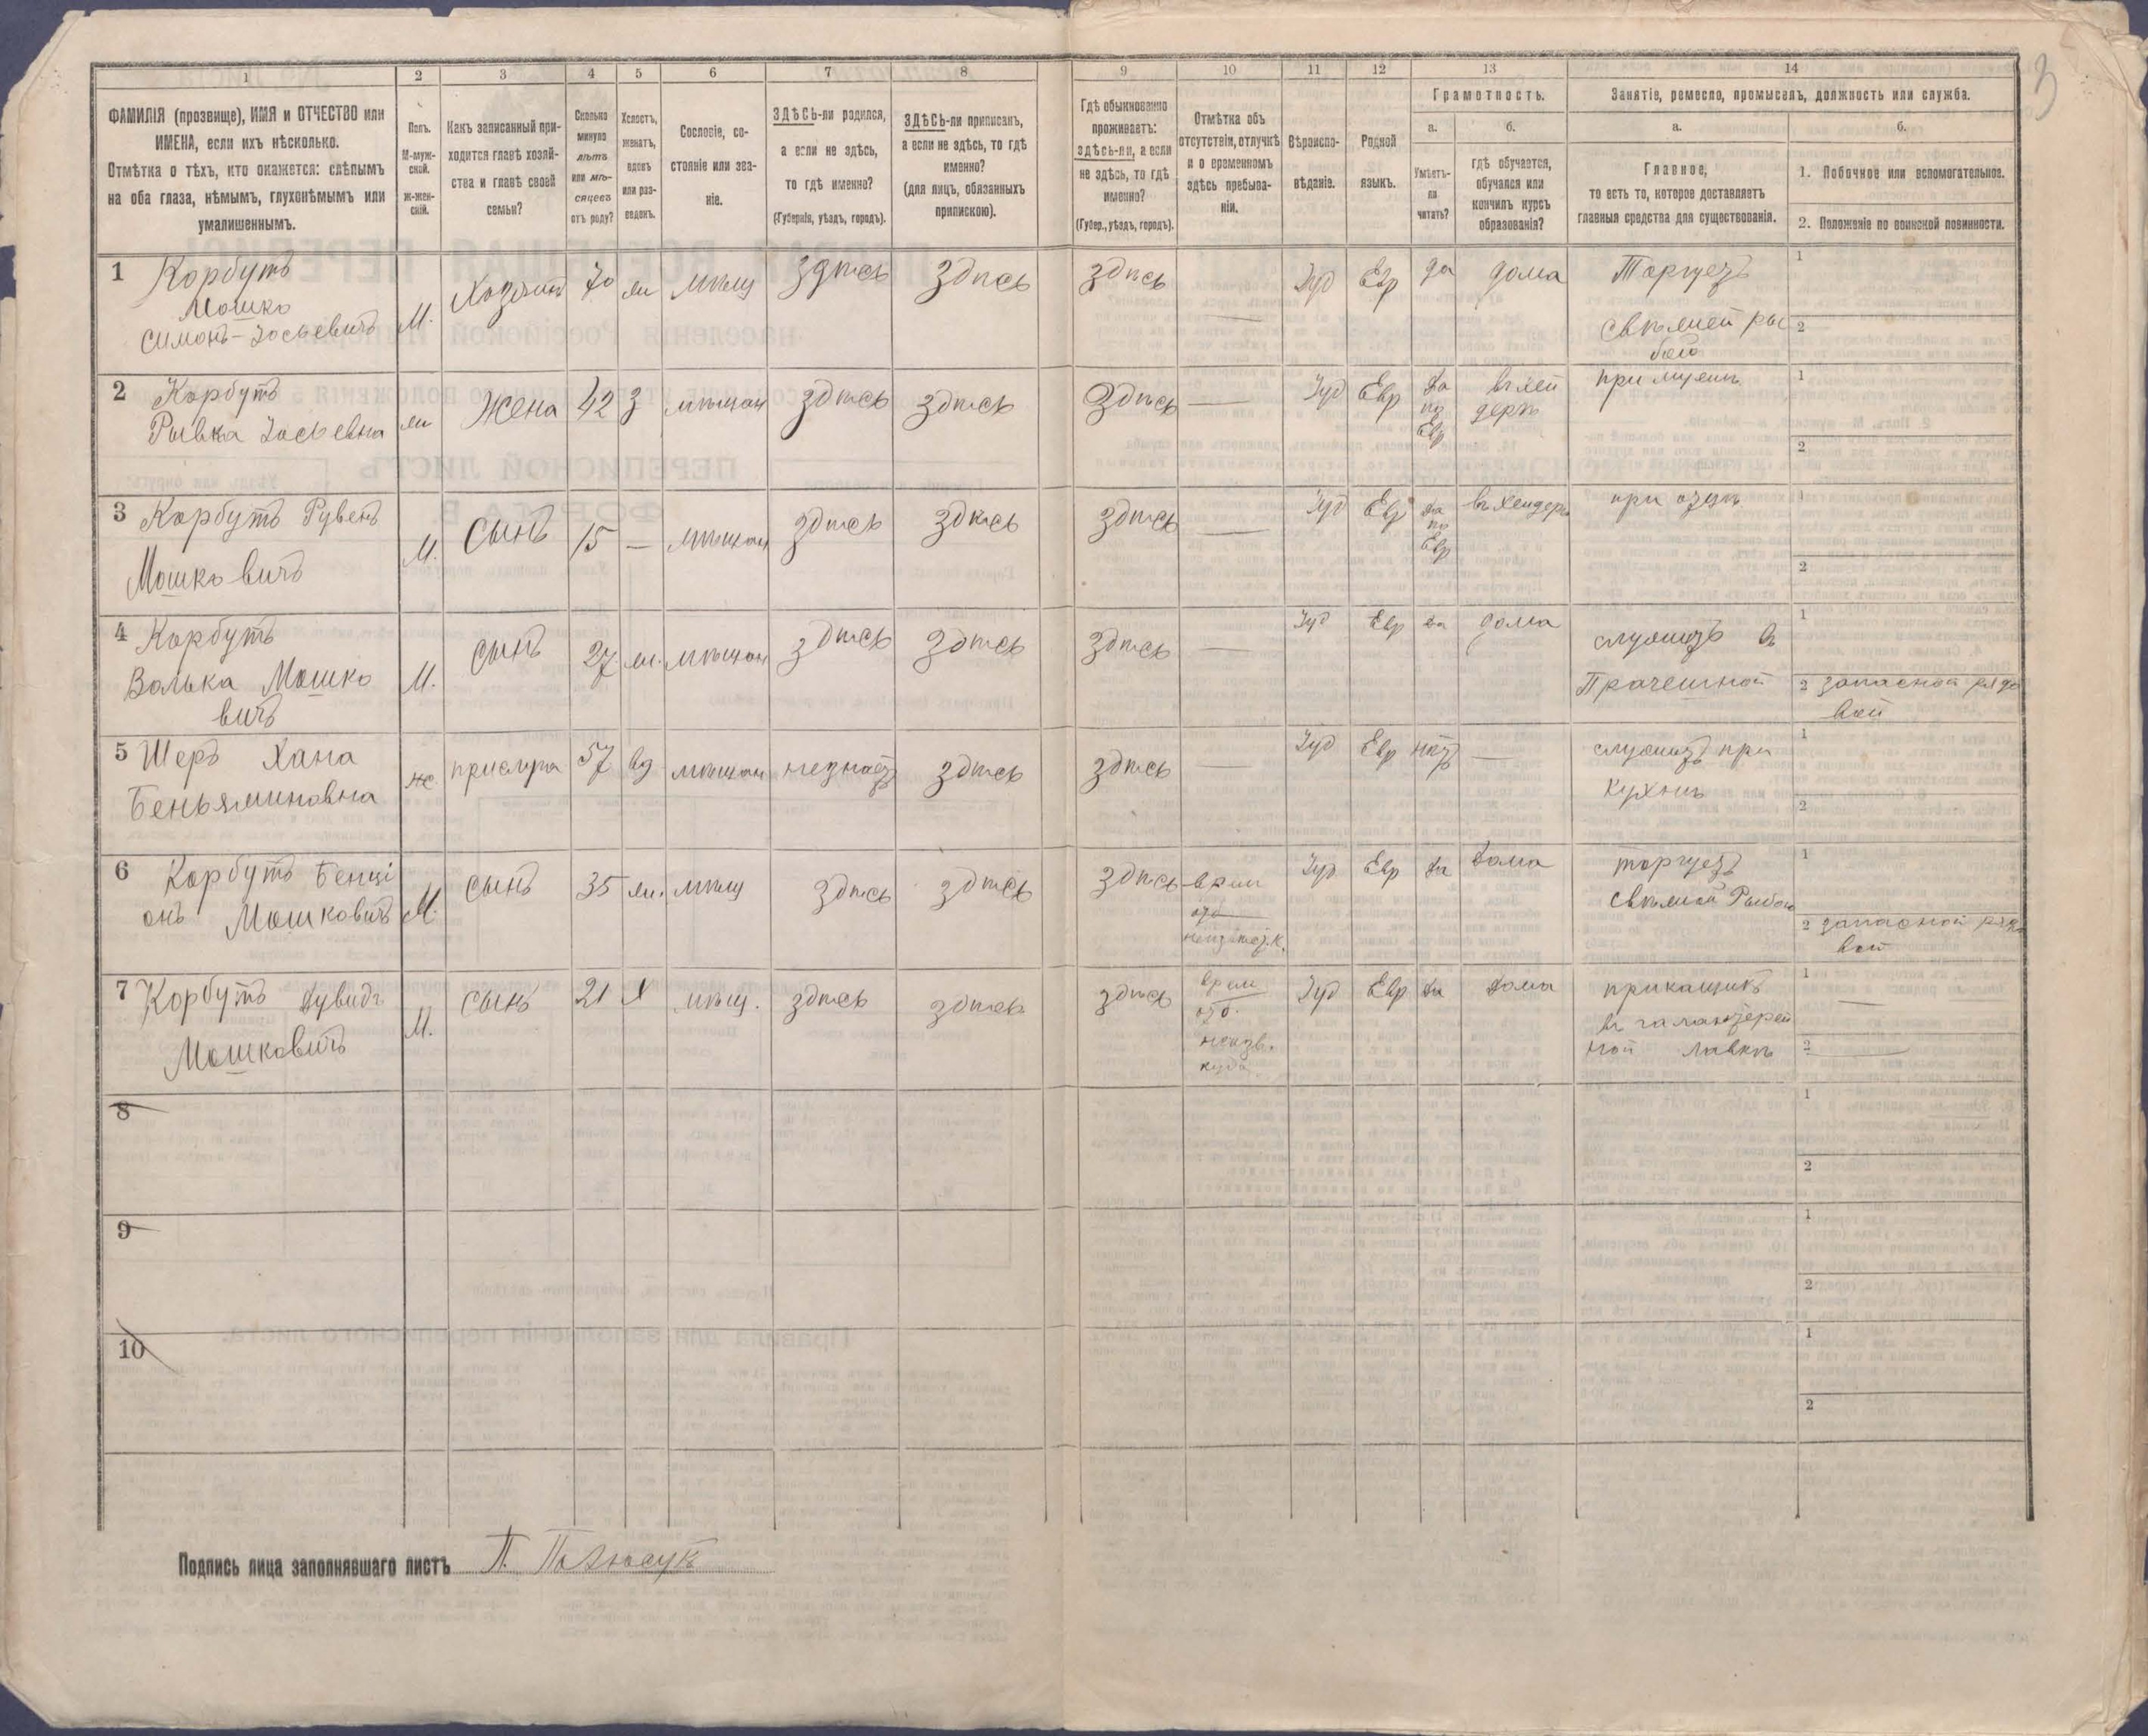 3
1 2 3 4 5 6 7 8 9 10 11 12 13 14
ФАМИЛІЯ (прозвище), ИМЯ и ОТЧЕСТВО или
ИМЕНА, если ихъ нѣсколько.
Отмѣтка о тѣхъ, кто окажется: слѣпымъ
на оба глаза, нѣмымъ, глухонѣмымъ или
умалишеннымъ.
Полъ.
М-муж-
ской.
Ж-жен-
скій.
Какъ записанный при-
ходится главѣ хозяй-
ства и главѣ своей
семьи?
Сколько
минуло
лѣтъ
или мѣ-
сяцевъ
отъ роду?
Холостъ,
женатъ,
вдовъ
или раз-
веденъ.
Сословіе, со-
стояніе или зва-
ніе.
ЗДѢСЬ-ли родился,
а если не здѣсь,
то гдѣ именно?
(Губернія, уѣздъ, городъ).
ЗДѢСЬ-ли приписанъ,
а если не здѣсь, то гдѣ
именно?
(для лицъ, обязанныхъ
припискою).
Гдѣ обыкновенно
проживаетъ:
здѣсь-ли, а если
не здѣсь, то гдѣ
именно?
(Губер., уѣздъ, городъ).
Отмѣтка объ
отсутствіи, отлучкѣ
и о временномъ
здѣсь пребыва-
ніи.
Вѣроиспо-
вѣданіе.
Родной
языкъ.
Грамотность.
а.
Умѣетъ-
ли
читать?
б.
гдѣ обучается,
обучался или
кончилъ курсъ
образованія?
Занятіе, ремесло, промыселъ, должность или служба.
а.
Главное,
то есть то, которое доставляетъ
главныя средства для существованія.
б.
1. Побочное или вспомогательное.
2. Положеніе по воинской повинности.
1 Корбутъ
Мошко
Симонъ-Іосьевичъ
М. Хозяинъ 70 мѣщ здѣсь здѣсь здѣсь — Іуд Евр да дома
Торгуетъ
свѣжей ры
бою
1
2
2 Корбутъ
Рывка Іосьевна
жена 42 з мѣщан здѣсь здѣсь здѣсь — Іуд Евр
да
по
Евр
при мужѣ
1
2
3 Корбутъ Рувенъ
Мошковичъ
М. сынъ 15 — мѣщан здѣсь здѣсь здѣсь — Іуд Евр
да
по
Евр
въ хендерѣ
при отцѣ
1
2
4 Корбутъ
Волька Мошко
вичъ
М. сынъ 27 мѣщан здѣсь здѣсь здѣсь — Іуд Евр да дома
служитъ въ
Прачешной
1
2 запасной рядо
вой
5 Шеръ Хана
Беньяминовна
ж прислуга 57 вд мѣщан незнаетъ здѣсь здѣсь — Іуд Евр нѣтъ —
служитъ при
кухнѣ
1
2
6 Корбутъ Бенці
онъ Мошковичъ
М. сынъ 35 мѣщ здѣсь здѣсь здѣсь
врем
отб
Іуд Евр да дома
торгуетъ
свѣжей Рыбою
1
2 запасной рядо
вой
7 Корбутъ Дувидъ
Мошковичъ
М. сынъ 21 Х мѣщ. здѣсь здѣсь здѣсь
врем
отб.
неизв.
куда
Іуд Евр да дома
прикащикъ
въ галантерей
ной лавкѣ
1 —
2 —
8
1
2
9
1
2
10
1
2
Подпись лица заполнявшаго листъ П.